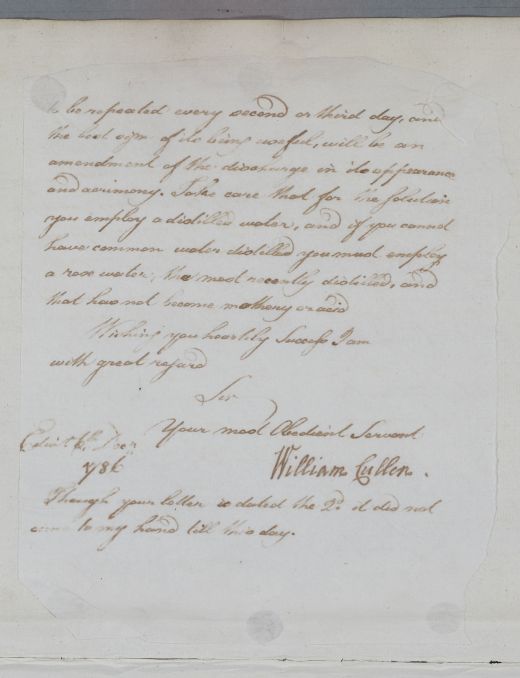 to be repeated every second or third day, and
the best sign of its being usefull, will be an
amendment of the discharge in its appearance
and acrimony. Take care that for the Solution
you employ a distilled water, and if you cannot
have common water distilled you must employ
a rose water, the most recently distilled, and
that has not become mothery or acid
Wishing you heartily Success I am
with great regard
Sir
Your most Obedient Servant
Edinr 6th
1786
William Cullen.
Though your letter is dated the 2d it did not
come to my hand till this day.